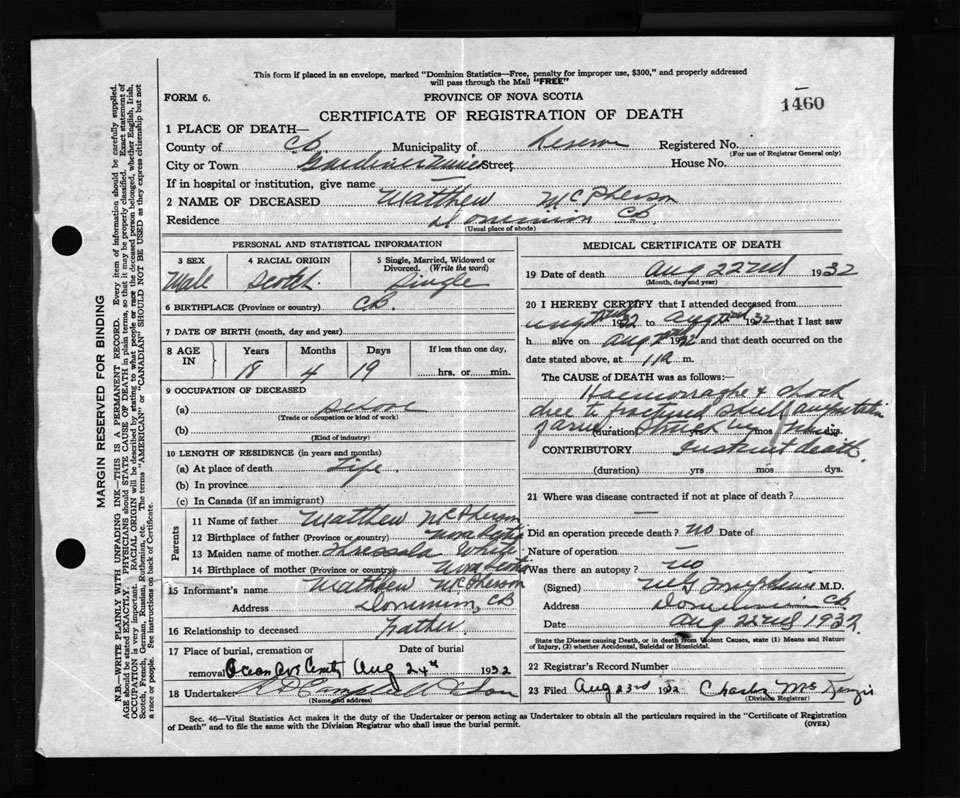 This form if placed in an envelope, marked "Dominion Statistics—Free, penalty for improper use, $300," and properly addressed
will pass through the Mail "FREE"
FORM 6.
PROVINCE OF NOVA SCOTIA
1460
CERTIFICATE OF REGISTRATION OF DEATH
1 PLACE OF DEATH—
County of C.B. Municipality of Reserve Registered No.
(For use of Registrar General only)
City or Town Gardiner Mines Street, House No.
If in hospital or institution, give name —
2 NAME OF DECEASED Matthew McPherson
Residence Dominion CB
(Usual place of abode)
PERSONAL AND STATISTICAL INFORMATION
3 SEX
Male
4 RACIAL ORIGIN
Scotch
5 Single, Married, Widowed or Divorced. (Write the word)
Single
6 BIRTHPLACE (Province or country) CB.
7 DATE OF BIRTH (month, day and year)
8 AGE IN Years Months Days If less than one day,
18 4 19 hrs. or min.
9 OCCUPATION OF DECEASED
(a)
(Trade or occupation or kind of work)
(b)
(Kind of industry)
10 LENGTH OF RESIDENCE (in years and months)
(a) At place of death Life
(b) In province
(c) In Canada (if an immigrant)
Parents
11 Name of father Matthew McPherson
12 Birthplace of father (Province or country) Nova Scotia
13 Maiden name of mother White
14 Birthplace of mother (Province or country) Nova Scotia
15 Informant's name Matthew McPherson
Address Dominion, CB
16 Relationship to deceased Father
17 Place of burial, cremation or removal Date of burial
Aug 24th 1932
18 Undertaker
(Name and address)
MEDICAL CERTIFICATE OF DEATH
19 Date of death Aug 22nd 1932
(Month, day and year)
20 I HEREBY CERTIFY that I attended deceased from
Aug 22nd 1932 to Aug 22nd 1932 that I last saw
h alive on Aug 22nd 1932 and that death occurred on the
date stated above, at 11a m.
The CAUSE of DEATH was as follows:—
Haemorraghe & shock
due to fractured skull, amputatin
(duration) yrs mos dys.
CONTRIBUTORY Instant death
(duration) yrs mos dys.
21 Where was disease contracted if not at place of death?
—
Did an operation precede death? no Date of
Nature of operation —
Was there an autopsy? no
(Signed) M.D.
Address Dominion CB
Date Aug 22nd 1932
State the Disease causing Death, or in death from Violent Causes, state (1) Means and Nature
of Injury, (2) whether Accidental, Suicidal or Homicidal.
22 Registrar's Record Number
23 Filed Aug 23rd 1932 Charles McKenzie
(Division Registrar)
Sec. 46—Vital Statistics Act makes it the duty of the Undertaker or person acting as Undertaker to obtain all the particulars required in the "Certificate of Registration
of Death" and to file the same with the Division Registrar who shall issue the burial permit.
(OVER)
MARGIN RESERVED FOR BINDING
N.B.—WRITE PLAINLY WITH UNFADING INK—THIS IS A PERMANENT RECORD. Every item of information should be carefully supplied.
AGE should be stated EXACTLY. PHYSICIANS should STATE CAUSE OF DEATH in plain terms, so that it may be properly classified. Exact statement of
OCCUPATION is very important. RACIAL ORIGIN will be described by stating to what people or race the deceased person belonged, whether English, Irish,
Scotch, French, German, Russian, Ruthenian, etc. The terms "AMERICAN" or "CANADIAN" SHOULD NOT BE USED as they express citizenship but not
a race or people. See instructions on back of Certificate.